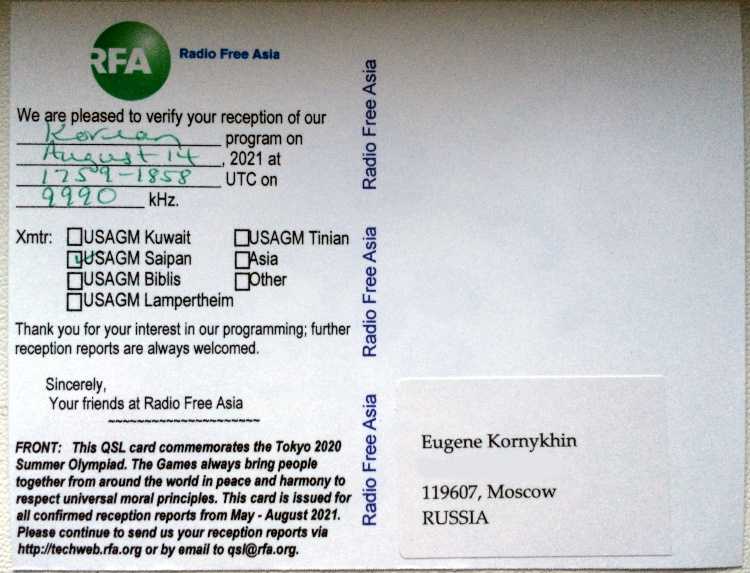 RFA
Radio Free Asia
We are pleased to verify your reception of our
Korean program on
August 14, 2021 at
1759-1858 UTC on
9990 kHz.
Xmtr: USAGM Kuwait USAGM Tinian
USAGM Saipan Asia
USAGM Biblis Other
USAGM Lampertheim
Thank you for your interest in our programming; further
reception reports are always welcomed.
Sincerely,
Your friends at Radio Free Asia
~~~~~~~~~~~~~~~~~~~~~
FRONT: This QSL card commemorates the Tokyo 2020
Summer Olympiad. The Games always bring people
together from around the world in peace and harmony to
respect universal moral principles. This card is issued for
all confirmed reception reports from May - August 2021.
Please continue to send us your reception reports via
http://techweb.rfa.org or by email to qsl@rfa.org.
Radio Free Asia
Radio Free Asia
Radio Free Asia
Eugene Kornykhin
119607, Moscow
RUSSIA